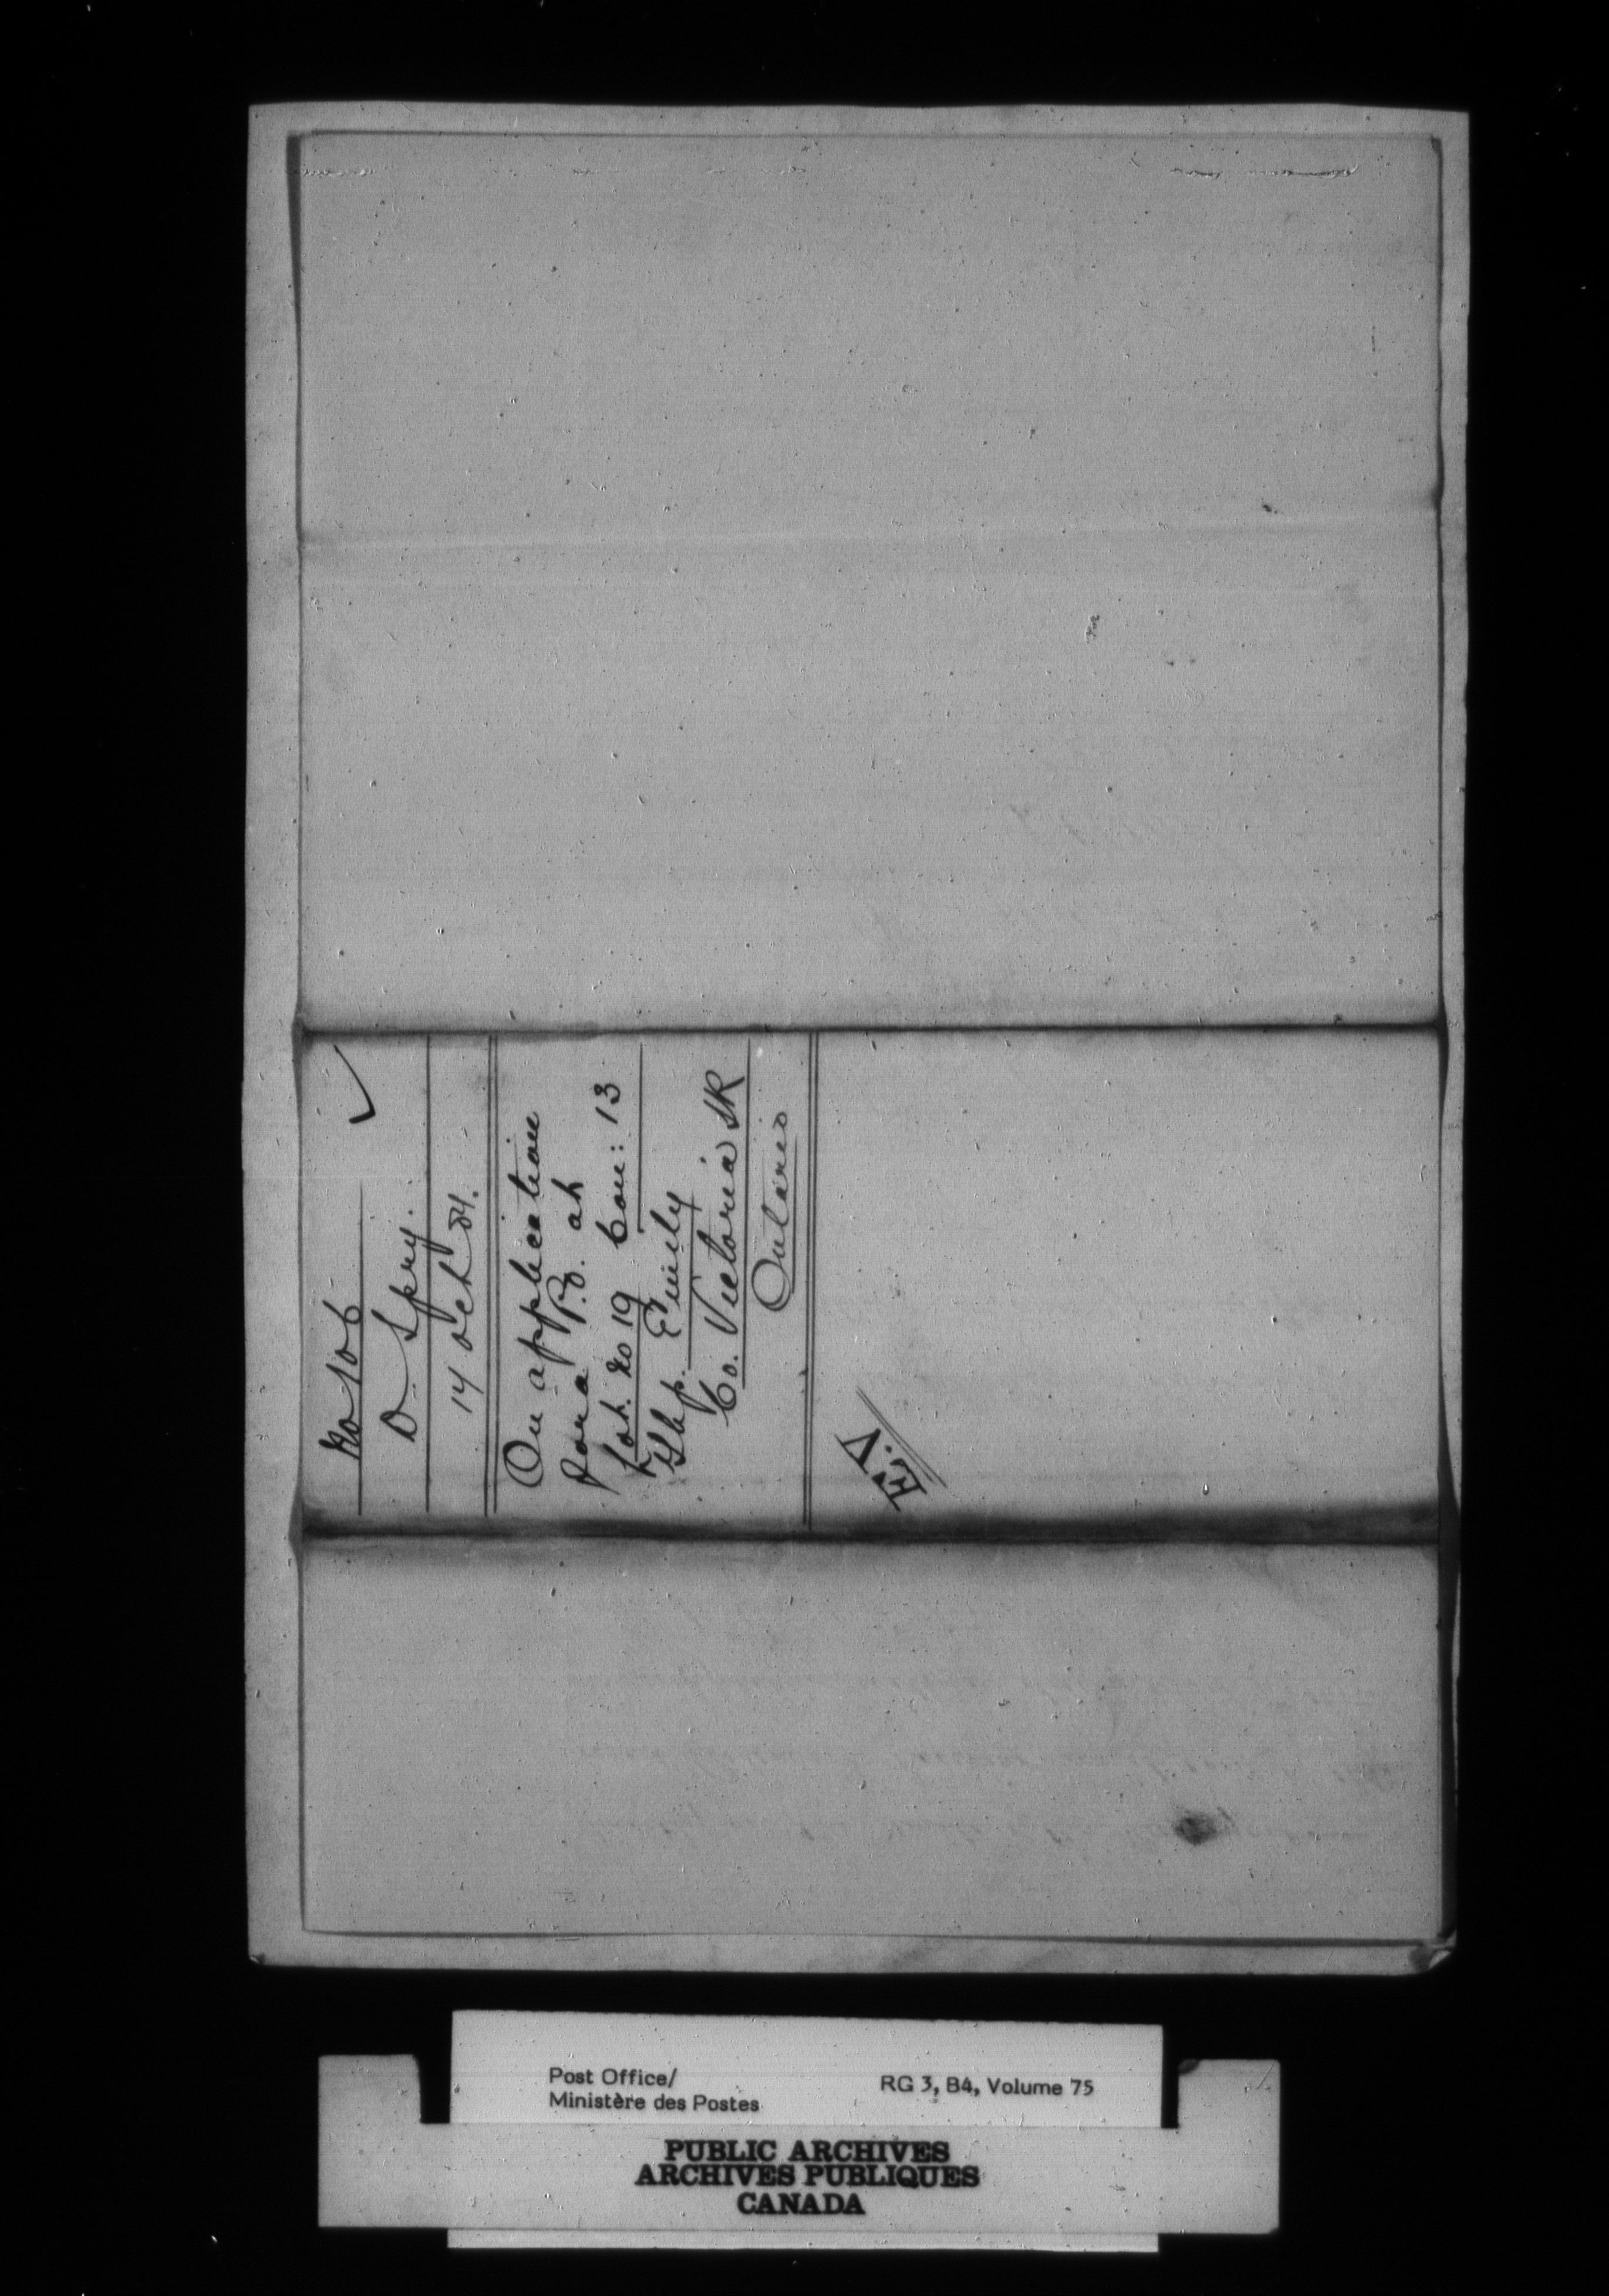 No 106
D Spry.
14 Oct 84.
On application
for a P.O. at
Lot. No 19 Con: 13
Tshp. Emily
Co. Victoria SR
Ontario
E.V
Post Office/
Ministère des Postes
RG 3, B4, Volume 75
PUBLIC ARCHIVES
ARCHIVES PUBLIQUES
CANADA